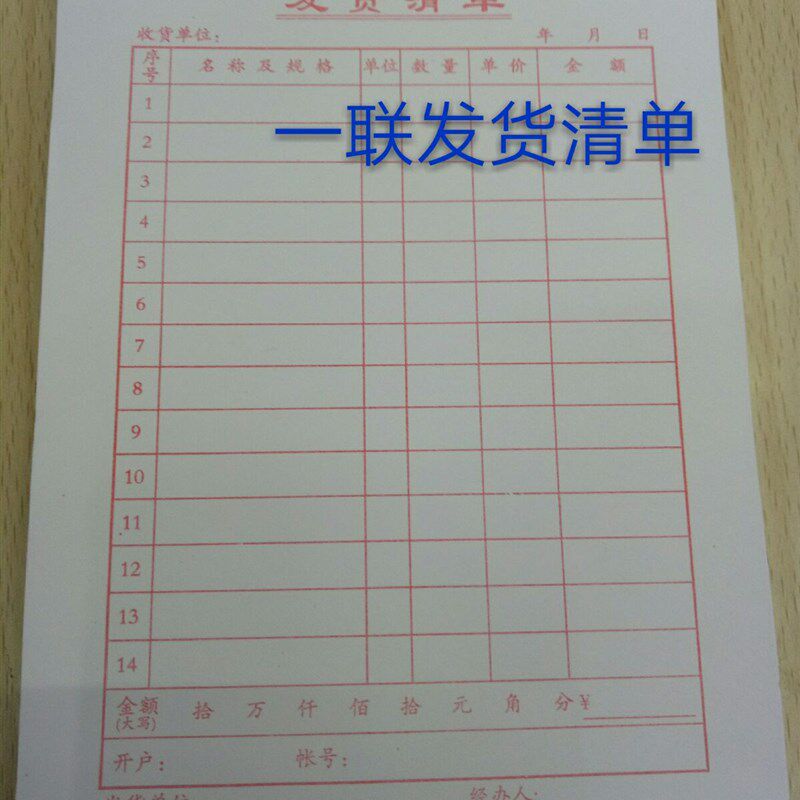 发货清单
收货单位: 年 月 日
序号 名称及规格 单位 数量 单价 金额
1
一联发货清单
2
3
4
5
6
7
8
9
10
11
12
13
14
金额(大写) 拾 万 仟 佰 拾 元 角 分 ¥
开户: 帐号:
经办人: